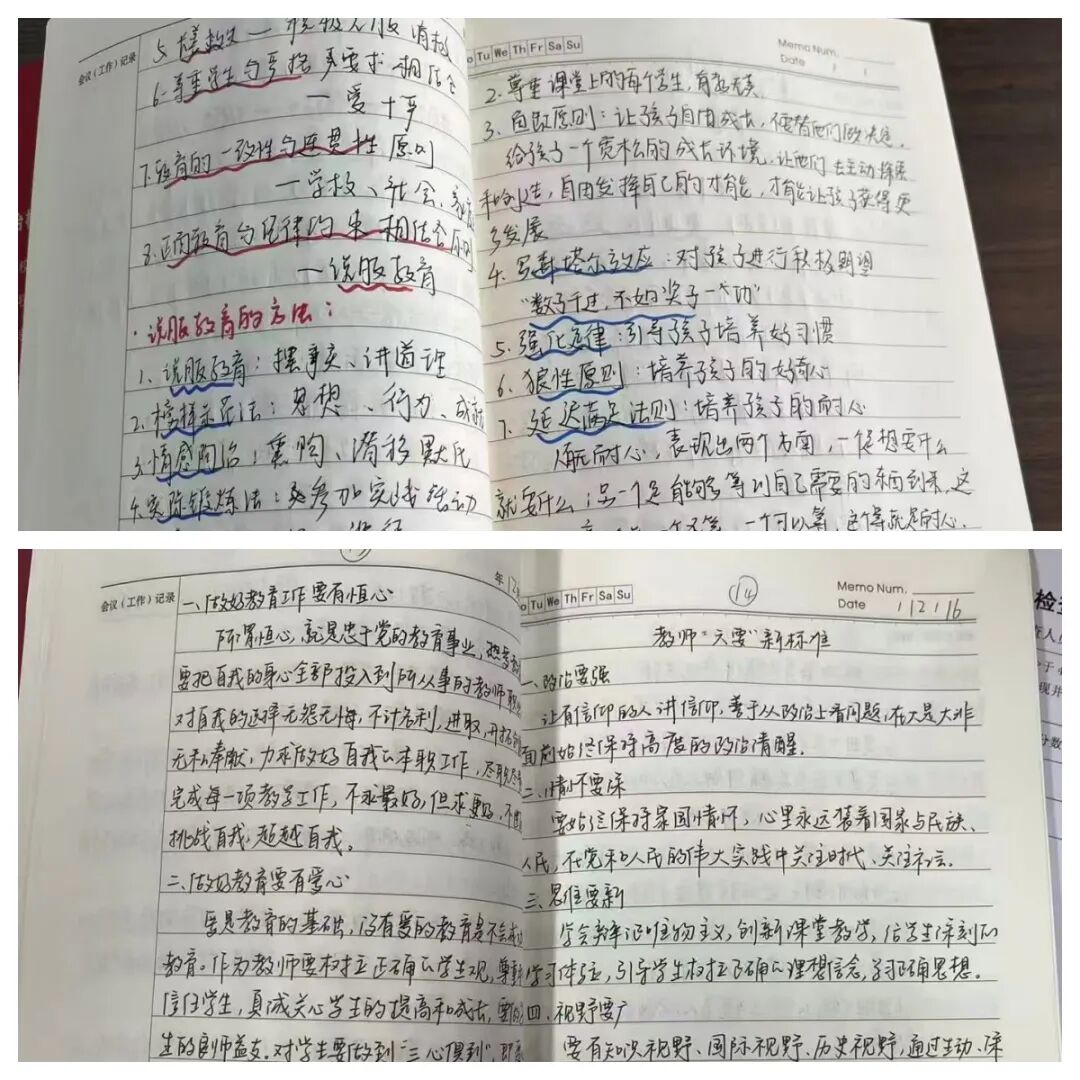 会议（工作）记录
6. 尊重学生与严格要求相结合
一爱十严
7. 教育的一致性与连贯性原则
一学校、社会、家庭
8. 正面教育与纪律约束相结合原则
一说服教育
·说服教育的方法：
1、说服教育：摆事实、讲道理
2、榜样示范法：思想、行为、成就
3、情感陶冶：熏陶、潜移默化
4、实际锻炼法：参加实践活动
Tu We Th Fr Sa Su
Memo Num.
Date / /
2. 尊重课堂上的每个学生，有教无类
3. 自既原则：让孩子自由成长，
给孩子一个宽松的成长环境，让他们去主动探展
自由发挥自己的才能，才能让孩子获得更
多发展
4. 罗森塔尔效应：对孩子进行积极期望
“数子千过，不如奖子一个功”
5. 强化定律：引导孩子培养好习惯
6. 狼性原则：培养孩子的好奇心
7. 延迟满足法则：培养孩子的耐心
耐心，表现出两个方面，一个是想要什么
就要什么；另一个是能够等到自己需要的东西到来，这
会议（工作）记录
年12
一、做好教育工作要有恒心
所谓恒心，就是忠于党的教育事业，热爱
要把自我的身心全部投入到所从事的教师职
对自我的选择无怨无悔，不计名利，进取，开拓
无私奉献，力求做好自我的本职工作，尽职尽
完成每一项教学工作，不求最好，但求更好，不
挑战自我，超越自我。
二、做好教育要有爱心
爱是教育的基础，没有爱的教育是不会成
教育。作为教师要树立正确的学生观，尊重
信任学生，真诚关心学生的提高和成长，要
生的良师益友。对学生要做到“三心俱到”，即
Tu We Th Fr Sa Su
14
Memo Num.
Date 1/2/16
教师“六要”新标准
一、政治要强
让有信仰的人讲信仰，善于从政治上看问题，在大是大非
面前始终保持高度的政治清醒。
二、情怀要深
要始终保持家国情怀，心里永远装着国家与民族、
人民，在党和人民的伟大实践中关注时代、关注社会。
三、思维要新
学会辩证唯物主义，创新课堂教学，给学生深刻的
学习体验，引导学生树立正确的理想信念，学习正确思想。
四、视野要广
要有知识视野、国际视野、历史视野，通过生动、深
检查